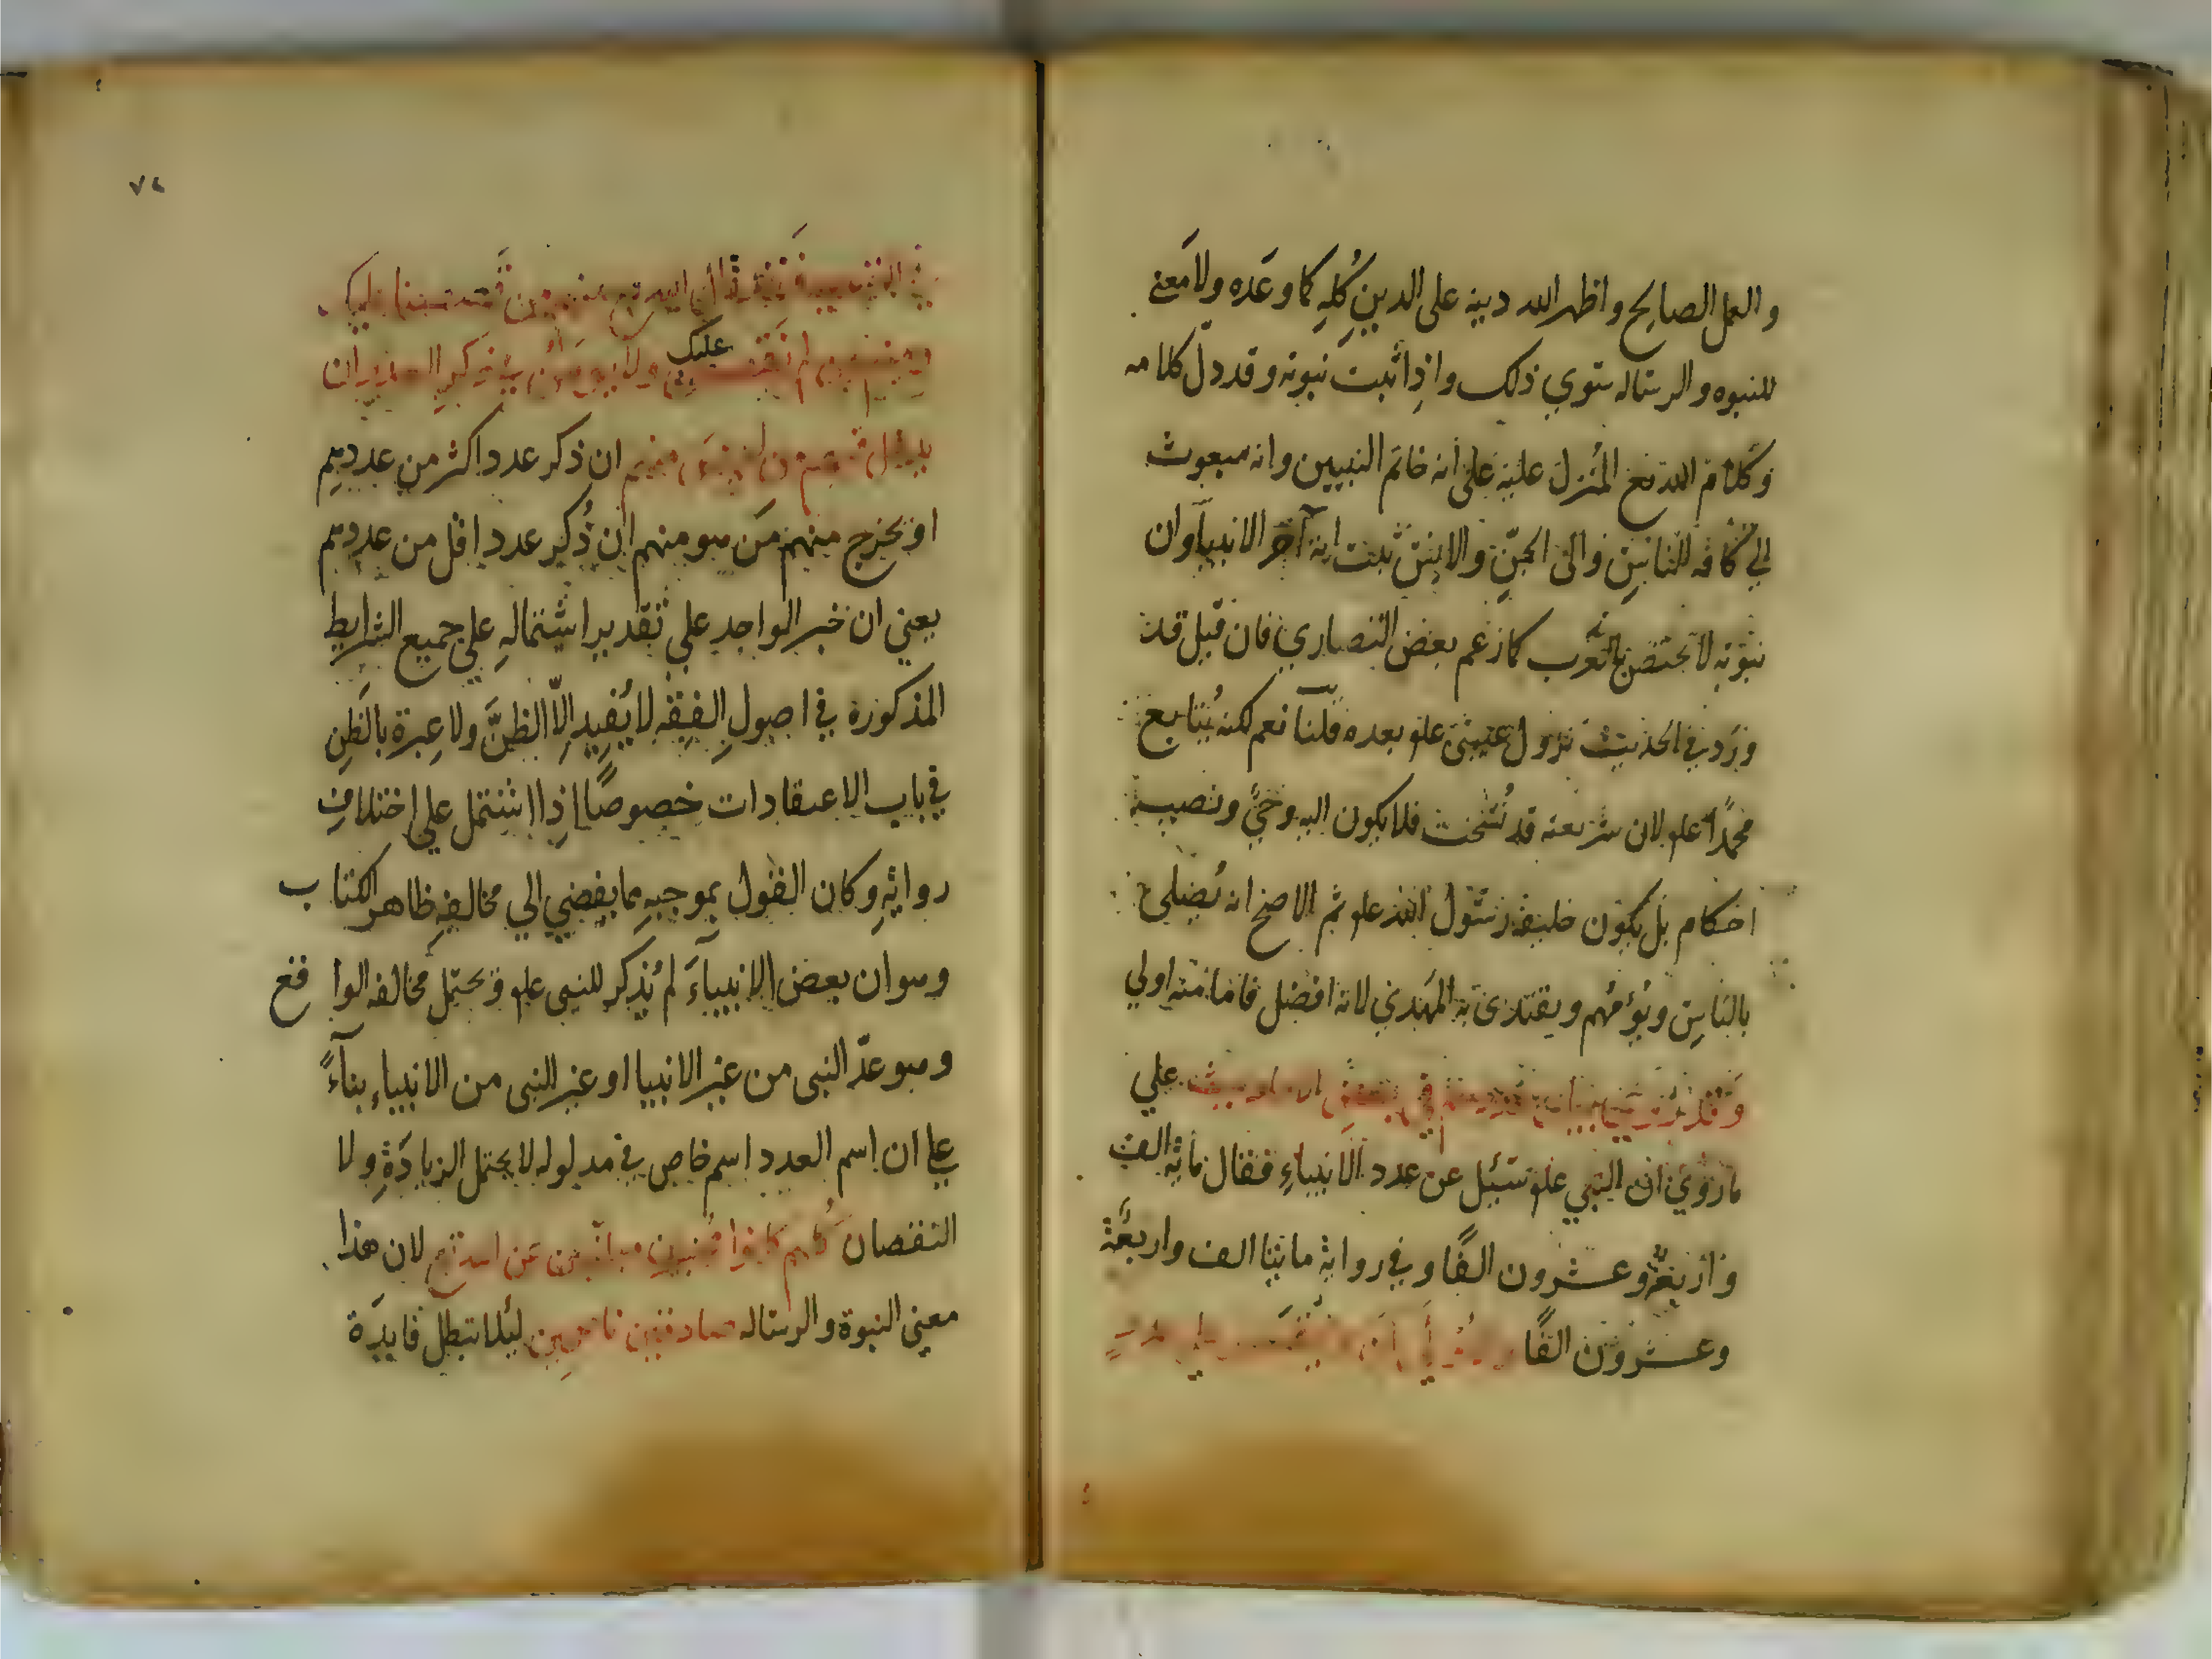 والعمل الصالح واظهر الله دينه على الدين كُلِهِ كما وعَده ولا مَعني
للنبوه والرساله سَوي ذلك واذا ثبت نبوته وقد دلّ كلامه
وكلام الله تع المُنزل عليه على انه خاتم النبيين وانه مبعوث
الي كافه للناسِ والى الجنّ والانس ثبت انه آخر الانبيآ وان
نبوّته لا تختص بالعَرب كما زعم بعض النصاري فان قيل قد
ورَد في الحديث نزول عيسى علم بعده قلنآ نعم لكنه يُتابع
محمدًا علم لان شريعته قد نُسخت فلا يكون اليه وحيٌ ونصب
احكام بل يكون خليفة رسول الله علم ثم الاصح انه يُصلي
بالناسِ ويؤمّهم ويقتدي به المهدي لانه افضل فامامته اولي
وَقد رُوي بيان عددهم في بعض الاحاديث علي
ما رُوي ان النبي علم سئيل عن عدد الانبياءِ فقال مايه الف
واربعةٌ وعشرون الفًا وفي رواية مايتا الف واربعَة
وعشرون الفًا والاولي ان لا يُقتصر علي عددٍ
في التسمية فَقد قال الله تع منهم من قَصَصنا عليك
ومنهم من لم نَقصُص عليك ولا يؤمَن في ذكرِ العدد ان
يدخل فيهم من ليسَ منهم ان ذكر عدد اكثر من عددهِم
او يخرج منهم مَن هو منهم ان ذُكِر عدد اقل من عددهم
يعني ان خبر الواحد علي تقدير اشتمالهِ علي جميع الشرايط
المذكورة في اصولِ الفِقهِ لا يُفيد الِاّ الظنَّ ولا عِبرة بالظنِ
في باب الاعتقادات خصوصًا اذِا اشتمل علي اختلافِ
روايةٍ وكان القول بموجبهِ مما يفضي الي مخالفهِ ظاهر الكتاب
وهو ان بعض الانبيآءَ لم يُذكر للنبي علم ويحتمل مخالفه الواقع
وهو عدّ النبي من غير الانبيا او غير النبي من الانبياءِ بنآءً
علي ان اسم العدد اسم خاص في مدلوله لا يحتمل الزيادَةِ ولا
النقصان كُلهم كانوا مُخبرين مبلّغين عن الله تع لان هذا
معني النبوة والرساله صادقين ناصحِين ليئلا تبطل فايدَة
٧٤